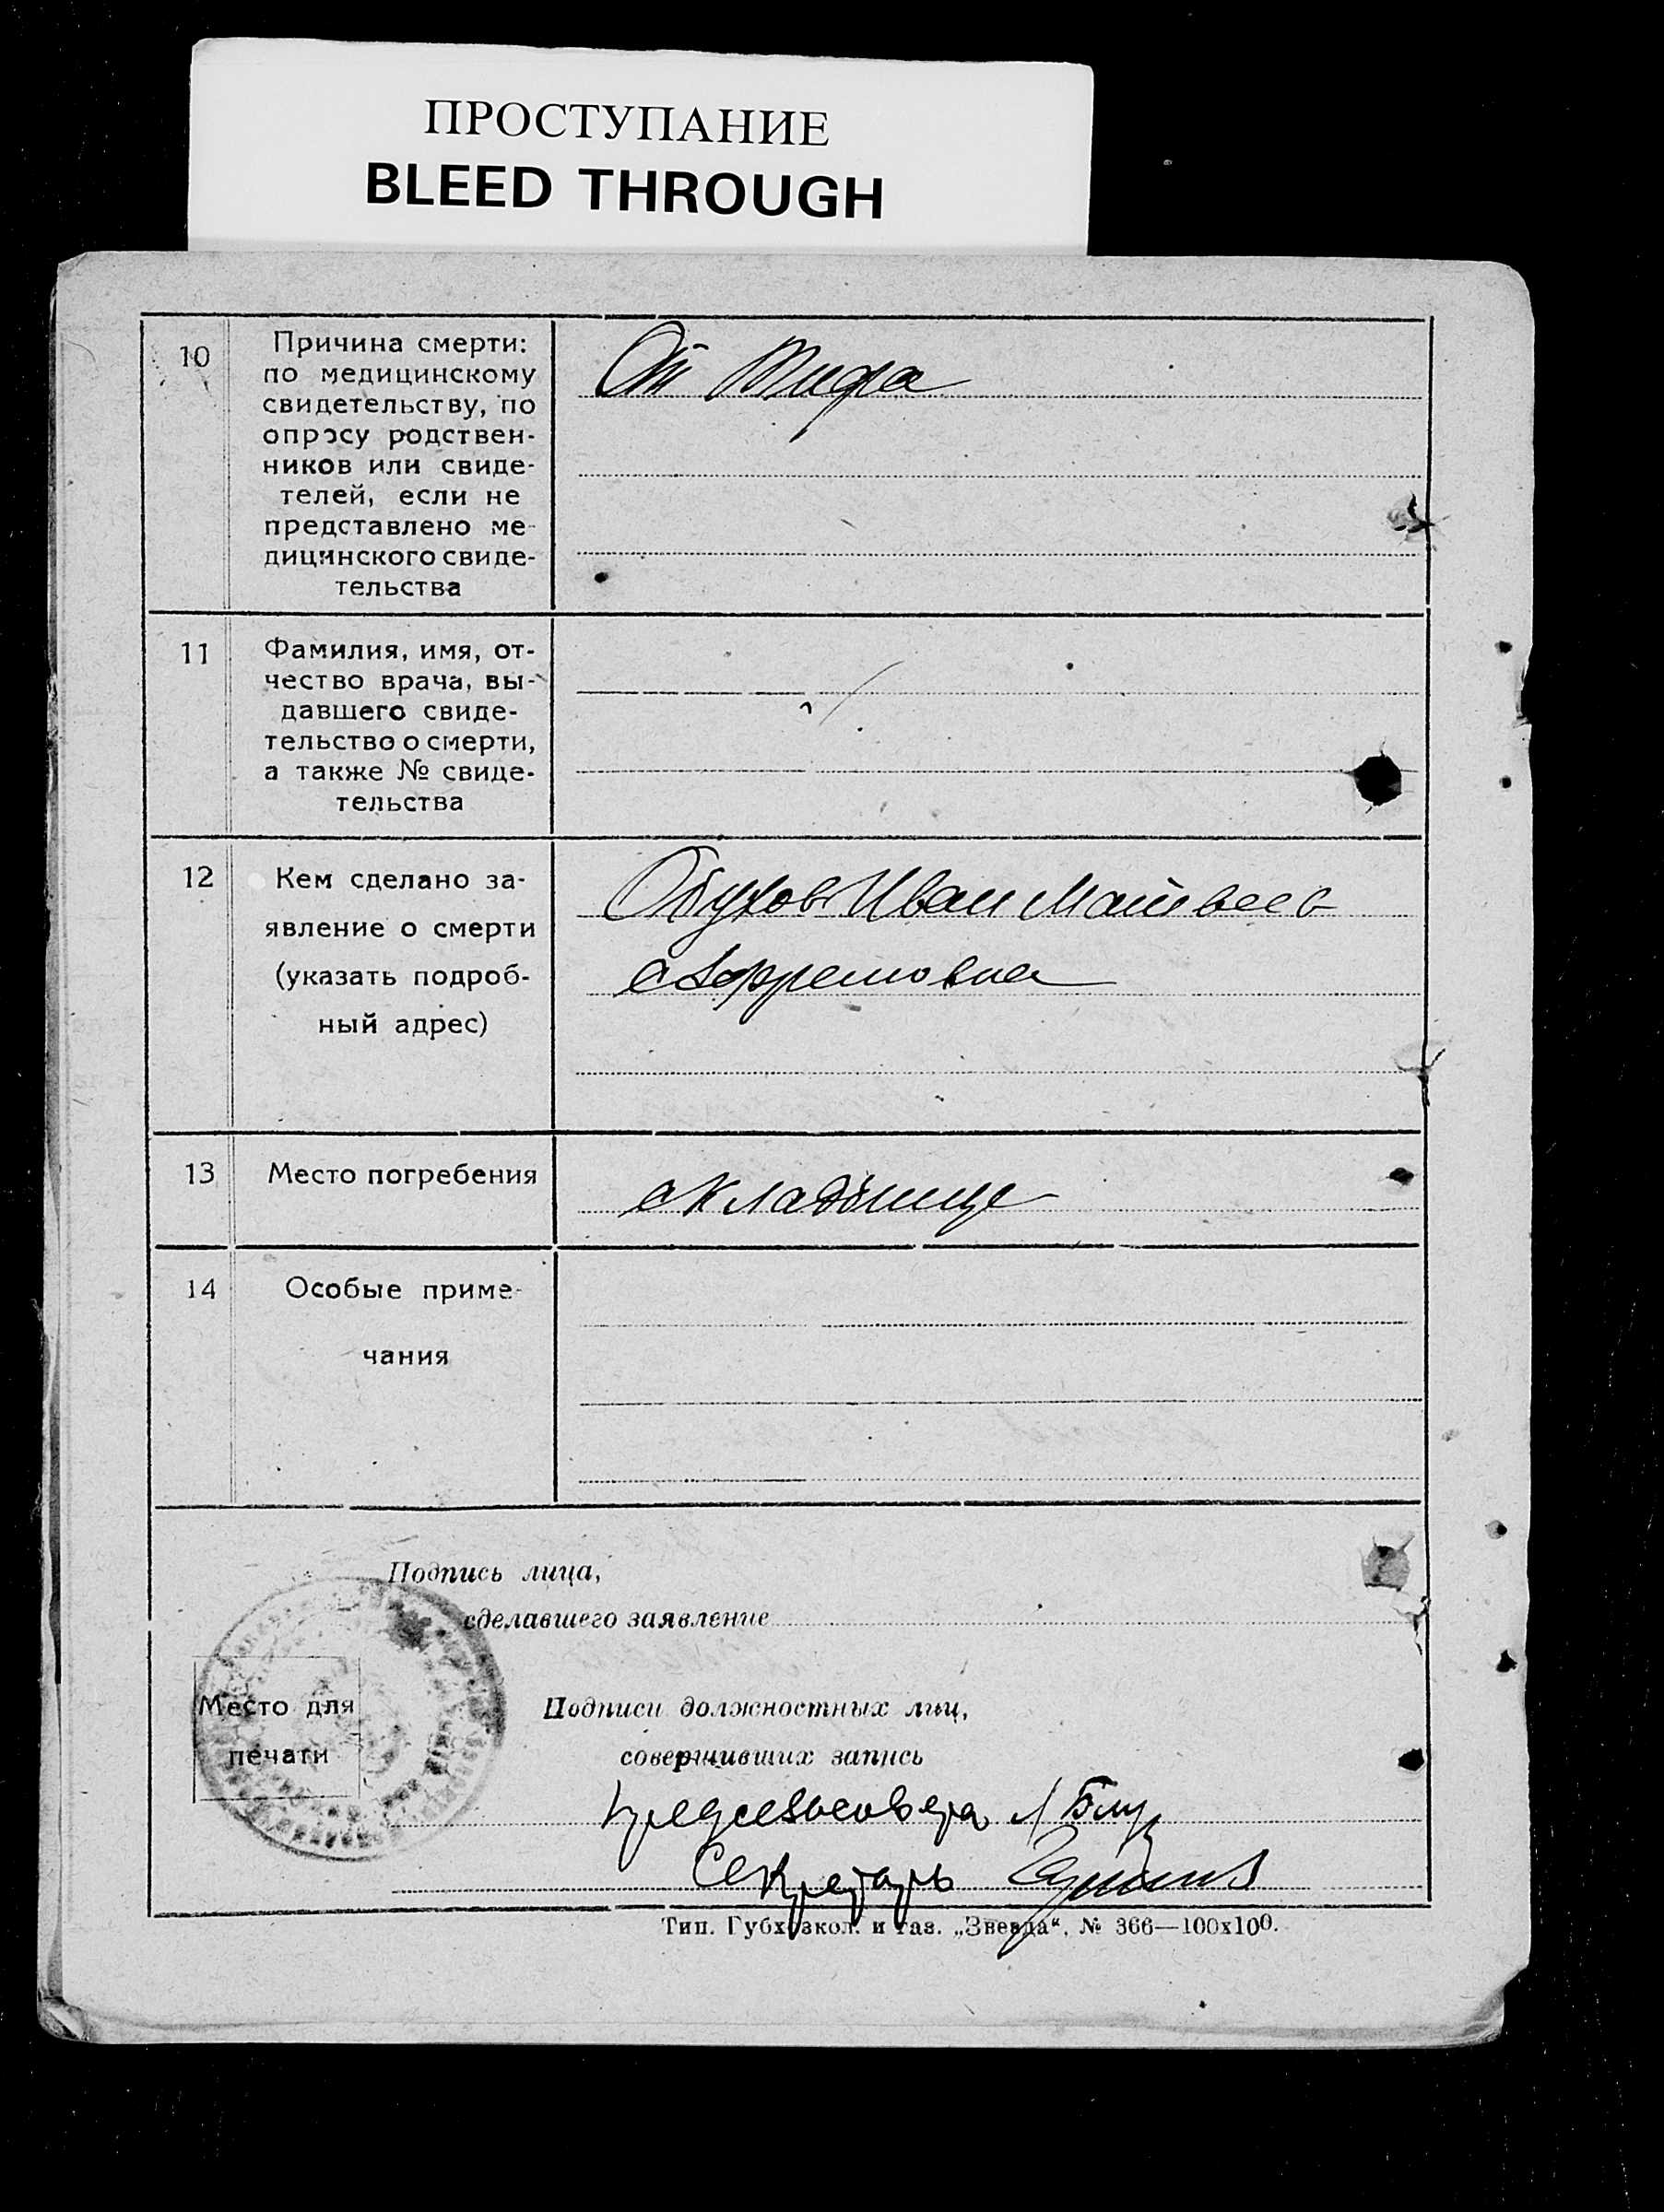 ПРОСТУПАНИЕ
BLEED THROUGH
10
Причина смерти:
по медицинскому
свидетельству, по
опросу родствен-
ников или свиде-
телей, если не
представлено ме-
дицинского свиде-
тельства
От Тифа
11
Фамилия, имя, от-
чество врача, вы-
давшего свиде-
тельство о смерти,
а также № свиде-
тельства
12
Кем сделано за-
явление о смерти
(указать подроб-
ный адрес)
Обухов Иван Матвеев
с Ефремовка
13
Место погребения
Кладбище
14
Особые приме-
чания
Подпись лица,
сделавшего заявление
Место для
печати
Подписи должностных лиц,
совершивших запись
Секретарь
Тип. Губхозкол. и газ. „Звезда“, № 366—100х100.